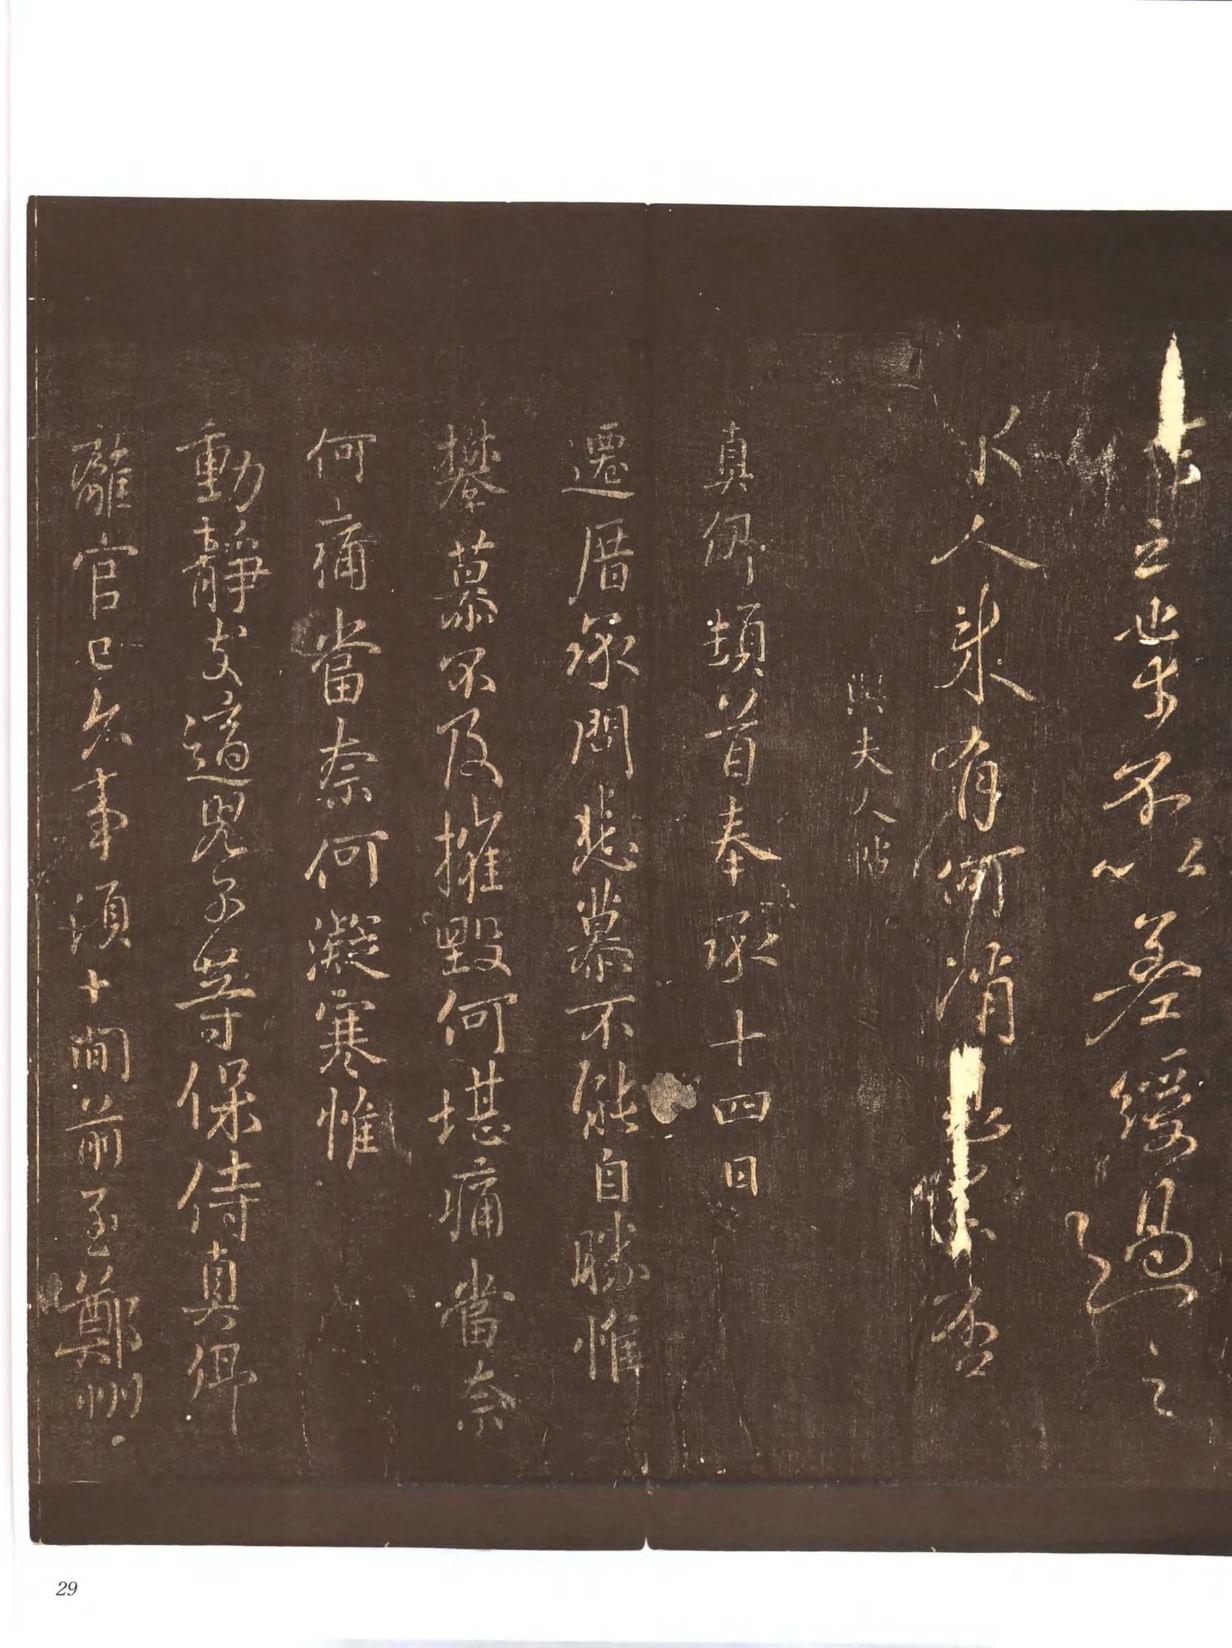 不以差緩過之
人来有何消否
與夫人帖
真卿頓首奉承十四日
遷厝承問悲慕不能自勝惟
攀慕不及摧毀何堪痛當奈
何痛當奈何凝寒惟
動靜支適兒子等保侍真卿
離官已久事須十間前至鄭州
29